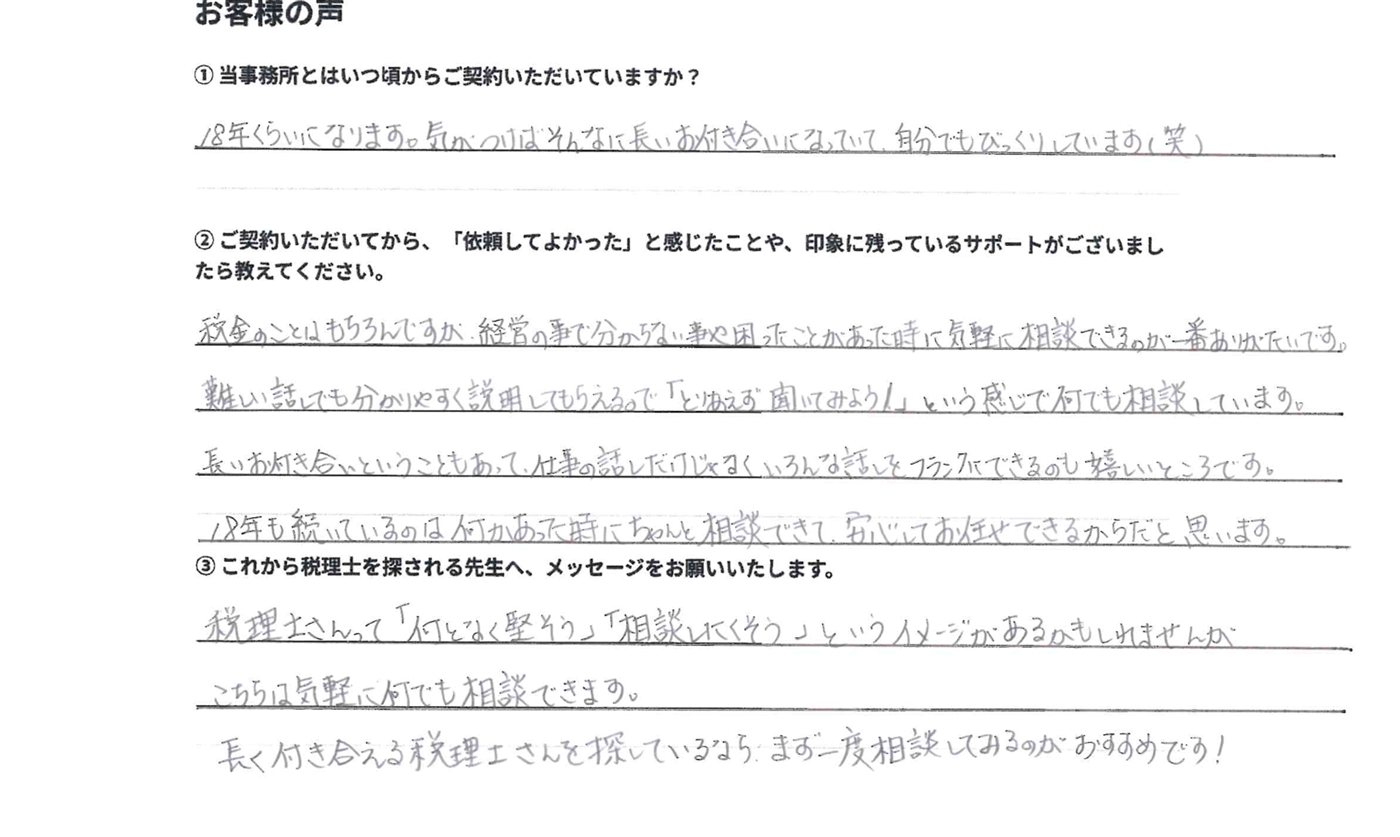 お客様の声
① 当事務所とはいつ頃からご契約いただいていますか？
18年くらいになります。気がつけばそんなに長いお付き合いになっていて、自分でもびっくりしています(笑)
② ご契約いただいてから、「依頼してよかった」と感じたことや、印象に残っているサポートがございまし
たら教えてください。
税金のことはもちろんですが、経営の事で分からない事や困ったことがあった時に気軽に相談できるのが一番ありがたいです。
難しい話しでも分かりやすく説明してもらえるので「とりあえず聞いてみよう！」という感じで何でも相談しています。
長いお付き合いということもあって、仕事の話しだけじゃなくいろんな話しをフランクにできるのも嬉しいところです。
18年も続いているのは何かあった時にちゃんと相談できて、安心してお任せできるからだと思います。
③ これから税理士を探される先生へ、メッセージをお願いいたします。
税理士さんって「何となく堅そう」「相談しにくそう」というイメージがあるかもしれませんが
こちらは気軽に何でも相談できます。
長く付き合える税理士さんを探しているなら、まず一度相談してみるのがおすすめです！